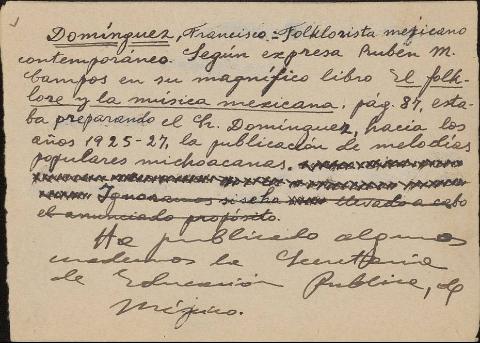 Domínguez, Francisco = Folklorista mejicano
contemporáneo. Según expresa Rubén M.
Campos en su magnífico libro El folk-
lore y la música mexicana, pág. 87, esta-
ba preparando el Sr. Domínguez, hacia los
años 1925-27, la publicación de melodías
populares michoacanas.
Ignoramos si se ha llevado a cabo
el anunciado propósito.
Ha publicado algunos
cuadernos la Secretaría
de Educación Publica, de
Méjico.